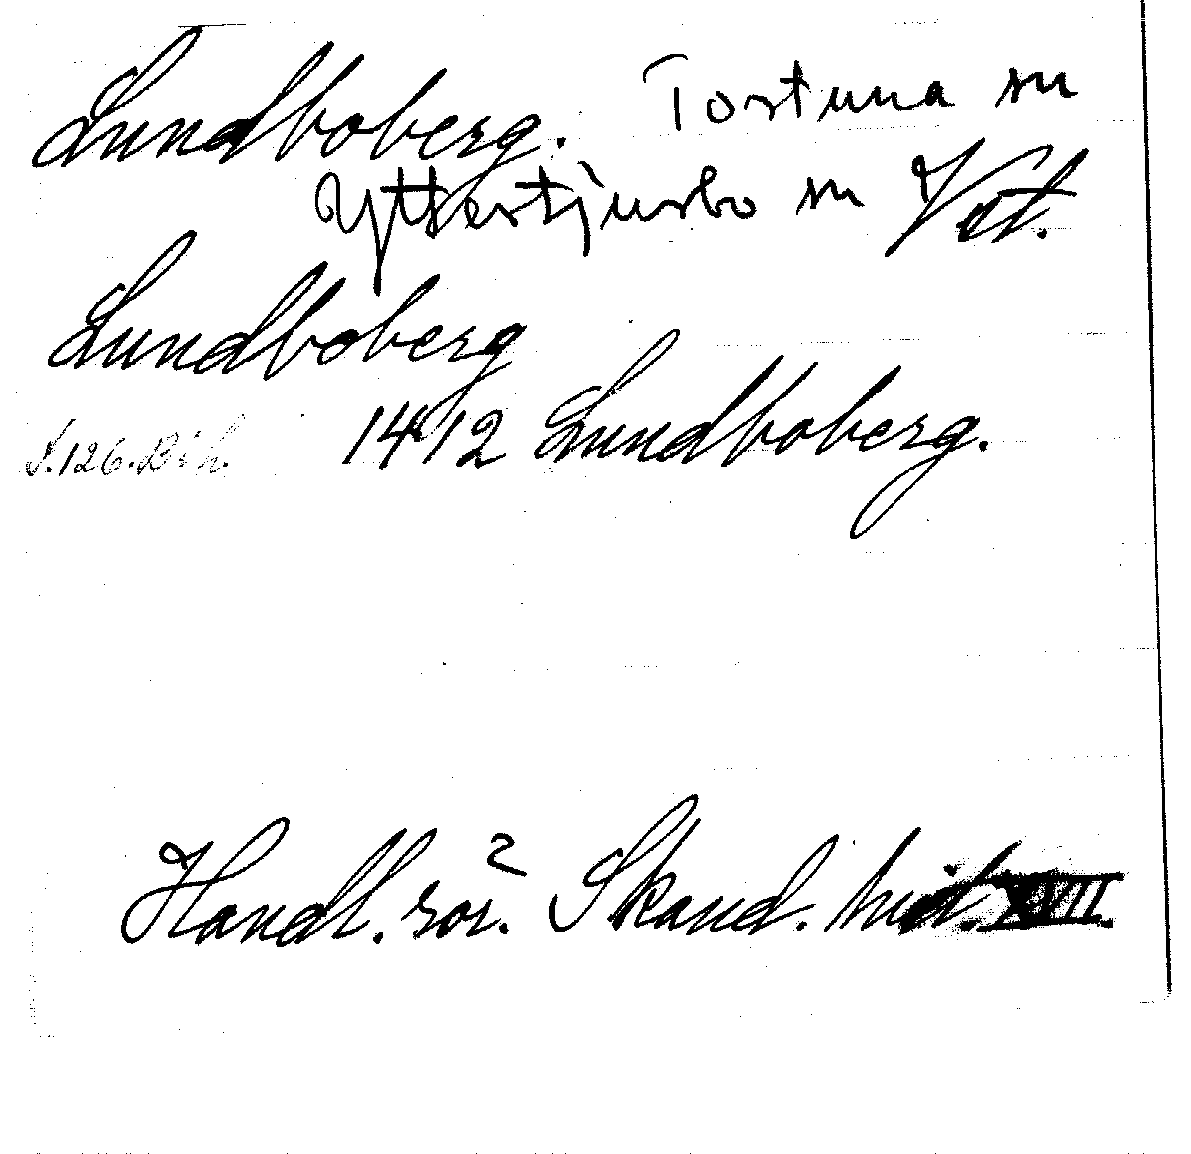 Lundboberg. Tortuna sn
Yttertjurbo sn Vstl.
Lundboberg
S.126.Bih. 1412 Lundboberg.
Handl. rör. Skand. hist. XVII.